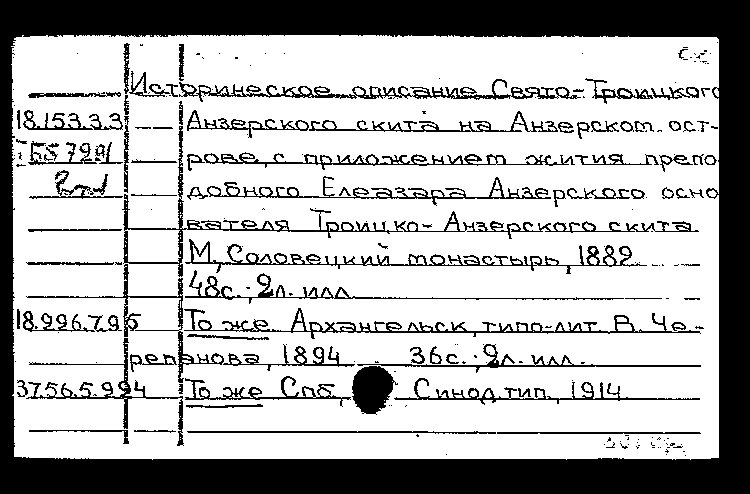 Историческое описание Свято-Троицкого
18.153.3.3 Анзерского скита на Анзерском ост-
рове, с приложением жития препо
добного Елеазара Анзерского осно
вателя Троицко-Анзерского скита
М., Соловецкий монастырь, 1882
48с.; 2л. илл.
18.996.7.95 То же Архангельск, типо-лит В. Че-
репанова, 1894 36с.; 2л. илл.
37.56.5.994 То же Спб, Синод. тип., 1914